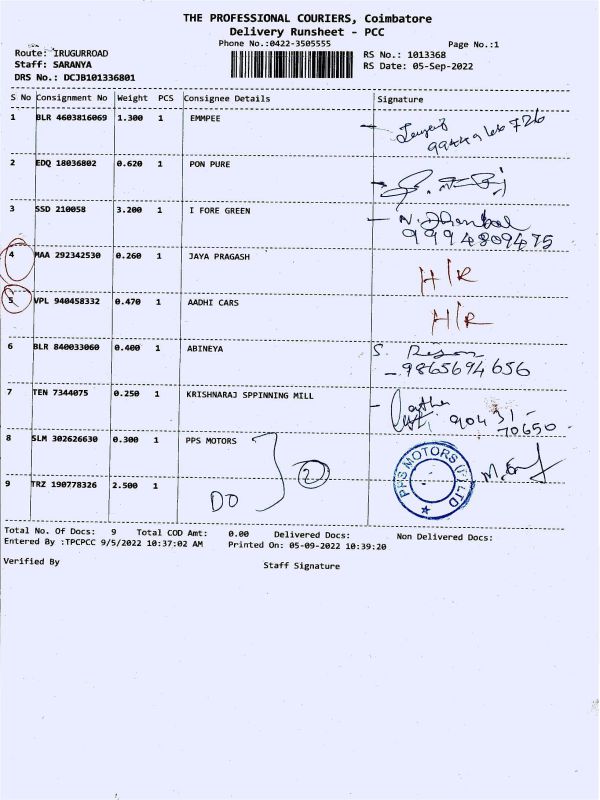 THE PROFESSIONAL COURIERS, Coimbatore
Delivery Runsheet - PCC
Phone No.:0422-3505555 Page No.:1
Route: IRUGURROAD RS No.: 1013368
Staff: SARANYA RS Date: 05-Sep-2022
DRS No.: DCJB101336801
S No Consignment No Weight PCS Consignee Details Signature
1 BLR 4603816069 1.300 1 EMMPEE
2 EDQ 18036802 0.620 1 PON PURE
3 SSD 210058 3.200 1 I FORE GREEN
99948 09475
4 MAA 292342530 0.260 1 JAYA PRAGASH H/R
5 VPL 940458332 0.470 1 AADHI CARS H/R
6 BLR 840033060 0.400 1 ABINEYA S.
9865694656
7 TEN 7344075 0.250 1 KRISHNARAJ SPPINNING MILL
90431-
70650
8 SLM 302626630 0.300 1 PPS MOTORS
2
PPS MOTORS (P) LTD
9 TRZ 190778326 2.500 1 DO
Total No. Of Docs: 9 Total COD Amt: 0.00 Delivered Docs: Non Delivered Docs:
Entered By :TPCPCC 9/5/2022 10:37:02 AM Printed On: 05-09-2022 10:39:20
Verified By Staff Signature